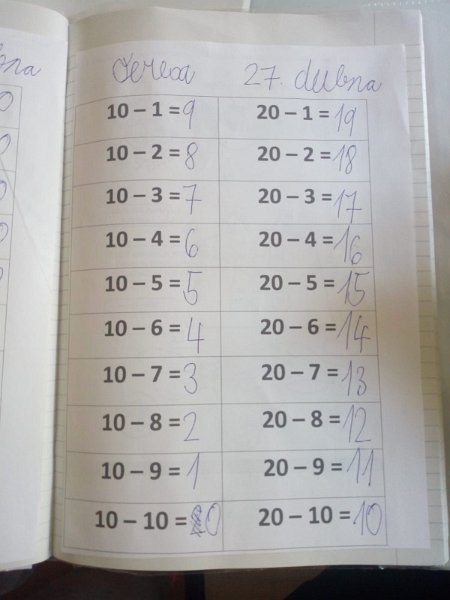 27. dubna
10 – 1 = 9 20 – 1 = 19
10 – 2 = 8 20 – 2 = 18
10 – 3 = 7 20 – 3 = 17
10 – 4 = 6 20 – 4 = 16
10 – 5 = 5 20 – 5 = 15
10 – 6 = 4 20 – 6 = 14
10 – 7 = 3 20 – 7 = 13
10 – 8 = 2 20 – 8 = 12
10 – 9 = 1 20 – 9 = 11
10 – 10 = 0 20 – 10 = 10